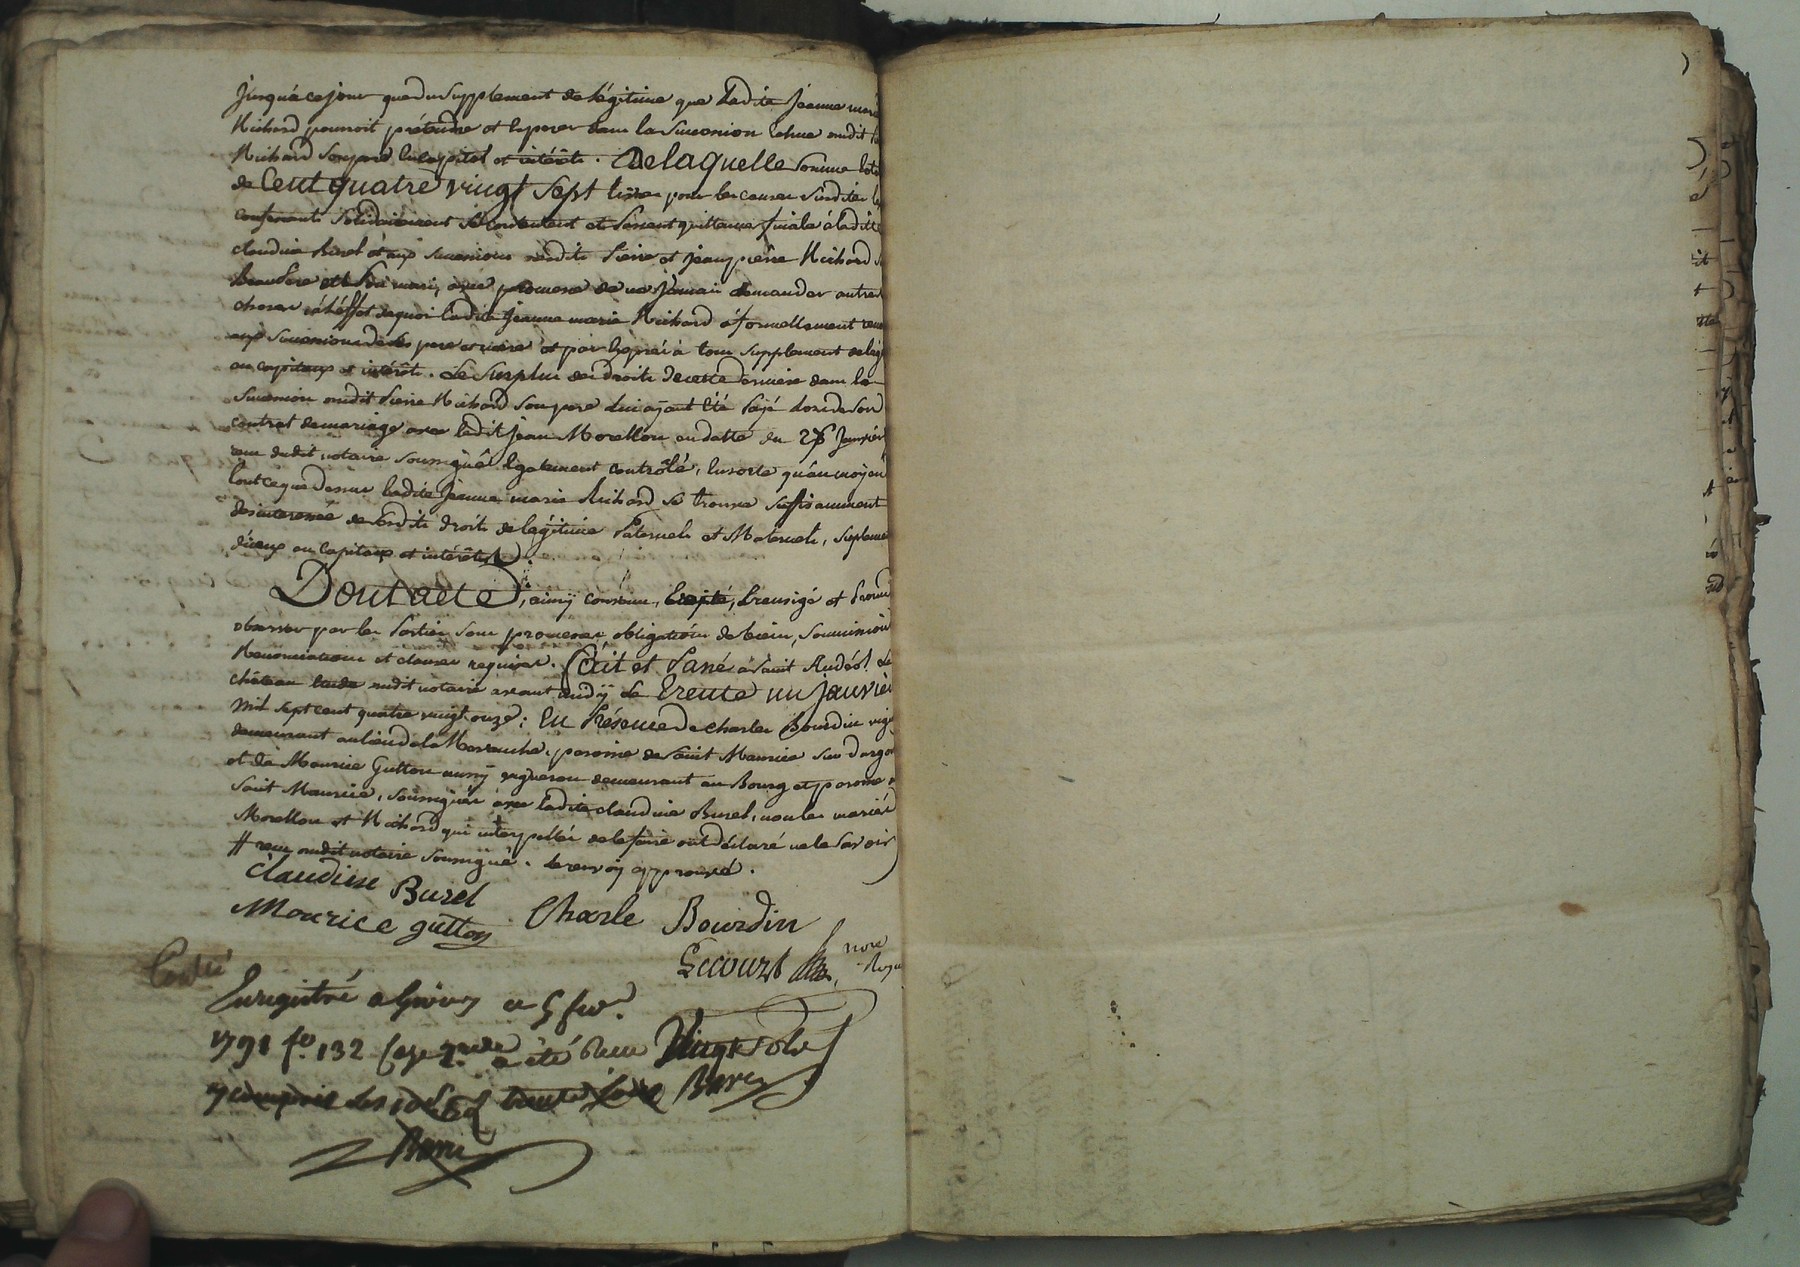 jusqu'à ce jour que du supplement de légitime que ladite jeanne marie
Richard pourroit prétendre et esperer dans la succession echue dudit
Richard son pere en capital et intérêts. De laquelle somme totale
de Cent quatre vingt sept livres pour les causes susdites les
confessants solidairement se contentent et passent quittance finale à ladite
claudine Burel et aux successions desdits Pierre et jean pierre Richard
Beau Pere et mari, avec promesse de ne jamais demander autre
choses à l'éffet de quoi ladite jeanne marie Richard à formellement
aux successions de ses pere et mere et par exprès à tous supplement de
en capitaux et intérêts. Le surplus des droits de cette derniere dans la
succession dudit Pierre Richard son pere lui ayant été payé lors de son
contrat de mariage avec ledit jean Morellon en datte du janvier
recu dudit notaire soussigné également contrôlé, ensorte qu'au moyen
tout ce que dessus ladite jeanne marie Richard se trouve suffisamment
desinteressée de sesdits droits de légitime Paternels et Maternels,
d'iceux en capitaux et intérêts.
Dont acte, ainsy convenu, accepté, et promis
observer par les Parties sous promesses obligations de biens, soumissions
Renonciations et clauses requises. Fait et Passé a Saint Andéol le
château étude dudit notaire avant midÿ le trente un janvier
mil sept cent quatre vingt onze: En Présence de Charles Bourdin
demeurant au lieu de la paroisse de Saint Maurice sur dargoire
et de Maurice Gutton aussy vigneron demeurant au Bourg et paroisse
Saint Maurice, soussignés avec ladite claudine Burel, non les mariés
Morellon et Richard qui interpellés de le faire ont déclaré ne le savoir
# recu dudit notaire soussigné. le renvoy approuvé.
claudine Burel
Mourice gutton Charle Bourdin
Lecourt nore
Enregistré a Givors ce 5 fer.
1791 fo. 132 a été
y compris les